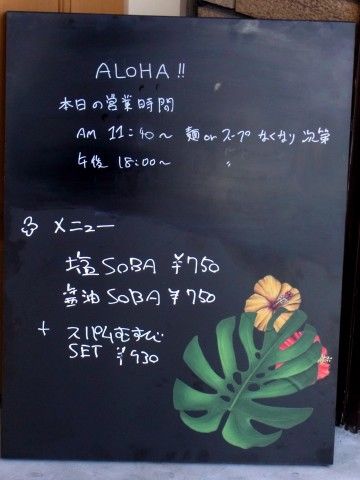 ALOHA!!
本日の営業時間
AM 11:40～ 麺orスープ なくなり 次第
午後 18:00～ 〃
メニュー
塩SOBA ¥750
醤油SOBA ¥750
+ スパムむすび
SET ¥930